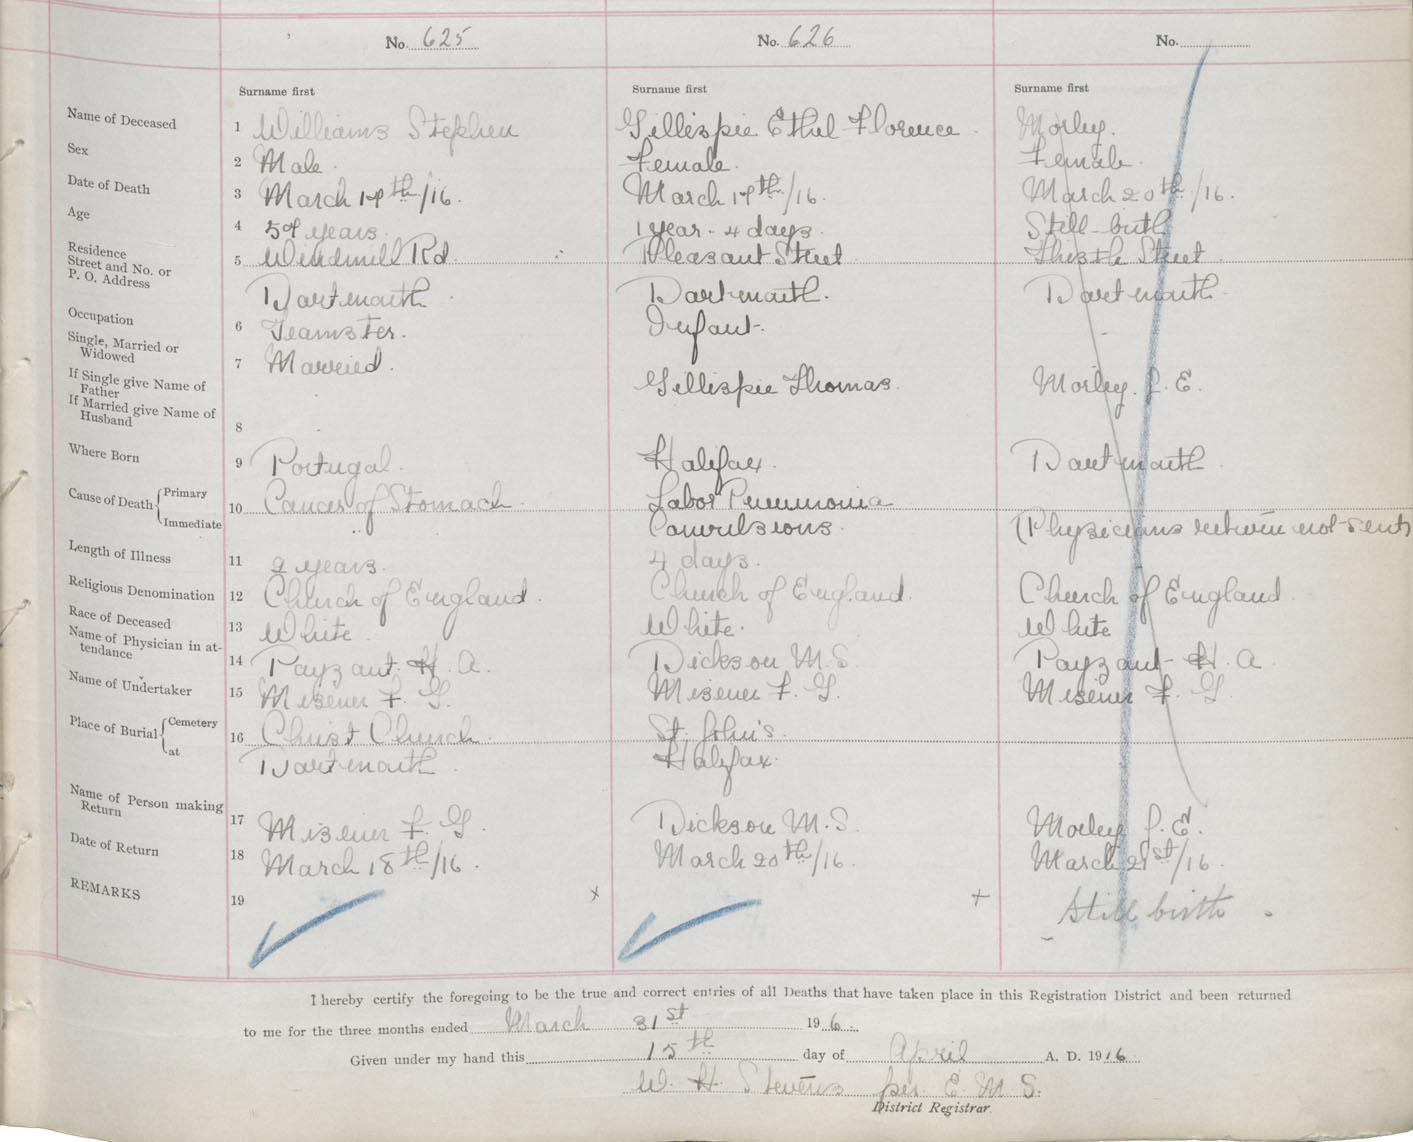 No. 625 No. 626 No.
Surname first Surname first Surname first
Name of Deceased 1 Williams Stephen Gillispie Ethel Florence. Morley.
Sex 2 Male. Female. Female.
Date of Death 3 March 17th/16. March 17th/16. March 20th/16.
Age 4 years. 1 year - 4 days. Still-birth
Residence
Street and No. or 5 Windmill Rd. Pleasant Street Thistle Street.
P. O. Address
Dartmouth. Dartmouth. Dartmouth.
Occupation 6 Teamster. Infant.
Single, Married or
Widowed 7 Married.
If Single give Name of
Father Gillispie Thomas. Morley. J. E.
If Married give Name of
Husband 8
Where Born 9 Portugal. Halifax. Dartmouth.
Cause of Death Primary 10 Cancer of Stomach. Labor Pneumonia
Immediate Convulsions. (Physicians return not sent)
Length of Illness 11 2 years. 4 days.
Religious Denomination 12 Church of England. Church of England. Church of England.
Race of Deceased 13 White. White. White
Name of Physician in at-
tendance 14 Payzant. H. A. Dickson M. S. Payzant H. A.
Name of Undertaker 15 Misener F. G. Misener F. G. Misener F. G.
Place of Burial Cemetery 16 Christ Church. St. John's.
at Dartmouth. Halifax.
Name of Person making
Return 17 Misener F. G. Dickson M. S. Morley J. E.
Date of Return 18 March 18th/16. March 20th/16. March 21st/16.
REMARKS 19 x + Still birth.
I hereby certify the foregoing to be the true and correct entries of all Deaths that have taken place in this Registration District and been returned
to me for the three months ended March 31st 19 6.
Given under my hand this 15th day of April A. D. 1916
W. H. Stevens per. E. M. S.
District Registrar.